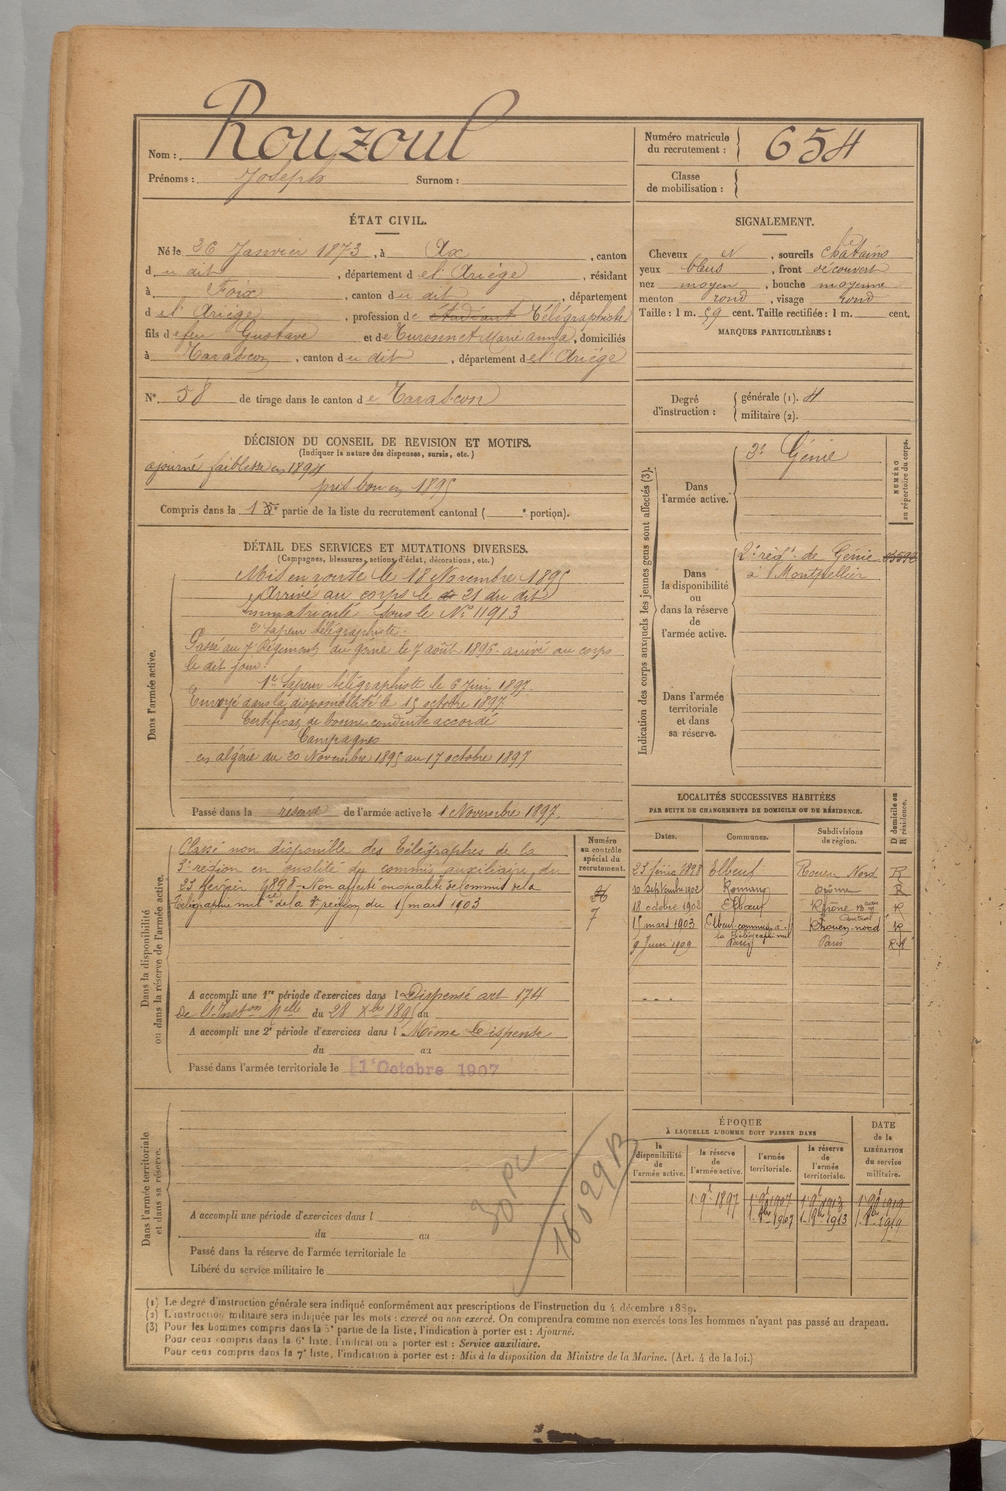 Nom : Rouzoul
Prénoms : Joseph Surnom :
Numéro matricule du recrutement : 654
Classe de mobilisation :
ÉTAT CIVIL.
Né le 26 Janvier 1873, à Ax, canton
du dit, département de l'Ariège, résidant
à Foix, canton du dit, département
de l'Ariège, profession de étudiant Télégraphiste
fils de feu Gustave et de Marie Anna, domiciliés
à Tarascon, canton du dit, département de l'Ariège
N° 58 de tirage dans le canton de Tarascon
SIGNALEMENT.
Cheveux N, sourcils châtains
yeux bleus, front découvert
nez moyen, bouche moyenne
menton rond, visage rond
Taille : 1 m. 59 cent. Taille rectifiée : 1 m. cent.
MARQUES PARTICULIÈRES :
Degré d'instruction : générale (1). 4
militaire (2).
DÉCISION DU CONSEIL DE REVISION ET MOTIFS.
(Indiquer la nature des dispenses, sursis, etc.)
ajourné faiblesse en 1894
pris bon en 1895
Compris dans la 1re partie de la liste du recrutement cantonal ( e portion).
DÉTAIL DES SERVICES ET MUTATIONS DIVERSES.
(Campagnes, blessures, actions d'éclat, décorations, etc.)
Dans l'armée active.
Mis en route le 18 Novembre 1895
Arrivé au corps le 21 du dit
Immatriculé sous le No 11913
2e Sapeur télégraphiste.
Passé au 7e Régiment du génie le 7 août 1896. arrivé au corps
le dit jour.
1er Sapeur télégraphiste le 6 Juin 1897.
Envoyé dans la disponibilité le 15 octobre 1897
Certificat de bonne conduite accordé
Campagnes
en algérie du 20 Novembre 1895 au 17 octobre 1897
Passé dans la réserve de l'armée active le 1 Novembre 1897.
Indication des corps auxquels les jeunes gens sont affectés (3).
NUMÉRO au répertoire du corps.
Dans l'armée active. 3e Génie
Dans la disponibilité ou dans la réserve de l'armée active.
2e régt de Génie
à Montpellier
Dans l'armée territoriale et dans sa réserve.
LOCALITÉS SUCCESSIVES HABITÉES
PAR SUITE DE CHANGEMENTS DE DOMICILE OU DE RÉSIDENCE.
Dates. Communes. Subdivisions de région. D domicile ou R résidence.
Elbeuf Rouen Nord R
10 septembre 1902 Romans Drôme R
18 octobre 1902 Elbeuf R
15 mars 1903 Rouen-nord R
9 Juin 1909 Paris Paris
Dans la disponibilité ou dans la réserve de l'armée active.
Numéro au contrôle spécial du recrutement.
Classé non disponible des Télégraphes de la
3e région en qualité de commis auxiliaire, du
25 février 1898. Non affecté en qualité de commis de la
Télégraphie milre de la 3e région du 15 mars 1903
7
A accompli une 1re période d'exercices dans l Dispensé art 174
de l'Inston Melle du 28 Xbre 1895 au
A accompli une 2e période d'exercices dans l Même Dispense
du au
Passé dans l'armée territoriale le 1er Octobre 1907
Dans l'armée territoriale et dans sa réserve.
A accompli une période d'exercices dans l
du au
Passé dans la réserve de l'armée territoriale le
Libéré du service militaire le
ÉPOQUE
À LAQUELLE L'HOMME DOIT PASSER DANS
la disponibilité de l'armée active. la réserve de l'armée active. l'armée territoriale. la réserve de l'armée territoriale.
DATE de la LIBÉRATION du service militaire.
1r 9e 1897 1r 9e 1907 1r 9e 1913 1r 9e 1919
1907 1913 1919
(1) Le degré d'instruction générale sera indiqué conformément aux prescriptions de l'instruction du 4 décembre 1889.
(2) L'instruction militaire sera indiquée par les mots : exercé ou non exercé. On comprendra comme non exercés tous les hommes n'ayant pas passé au drapeau.
(3) Pour les hommes compris dans la 5e partie de la liste, l'indication à porter est : Ajourné.
Pour ceux compris dans la 6e liste, l'indication à porter est : Service auxiliaire.
Pour ceux compris dans la 7e liste, l'indication à porter est : Mis à la disposition du Ministre de la Marine. (Art. 4 de la loi.)